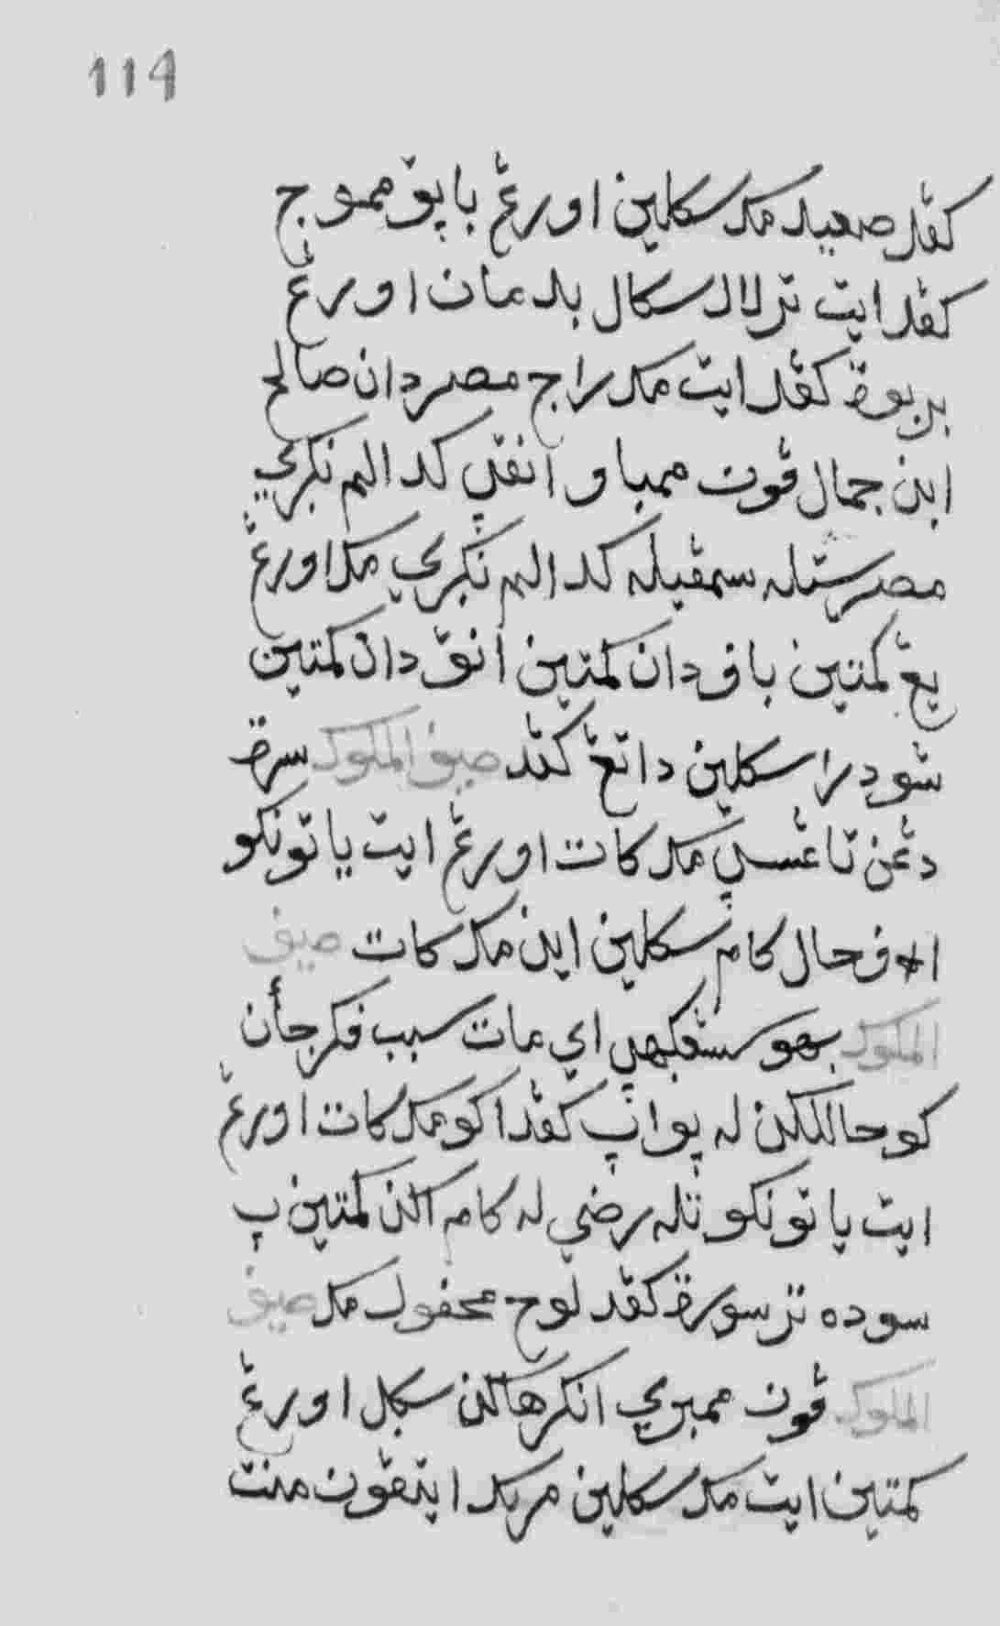 114
کڤد صعيد مک سکلين اورڠ باپق مموج
کڤد ايت ترلالا سکال بدمان اورڠ
بربوة کڤد ايت مک راج مصر دان صالح
ابن جمال ڤون ممباو انقڽ کدالم نکري
مصر ستله سمڤيله کدالم نکري مک اورڠ
يڠ کمتين باڤ دان کمتين انق دان کمتين
سودرا سکلين داتڠ کڤد صيف الملوک سرة
دڠن تاڠسڽ مک کات اورڠ ايت يا تونکو
اڤ حال کام سکلين اين مک کات صيف
الملوک بهو سسڠکهڽ اي مات سبب ڤکرجأن
کو حاللکن له ڤواڽ کڤد اکو مک کات اورڠ
ايت يا تونکو تله رضي له کامه اکن کمتين ڽ
سوده ترسورة کڤد لوح محفول مک صيف
الملوک ڤون ممبري انکرهاکن سکل اورڠ
کمتين ايت مک سکلين مريک ايتڤون منت